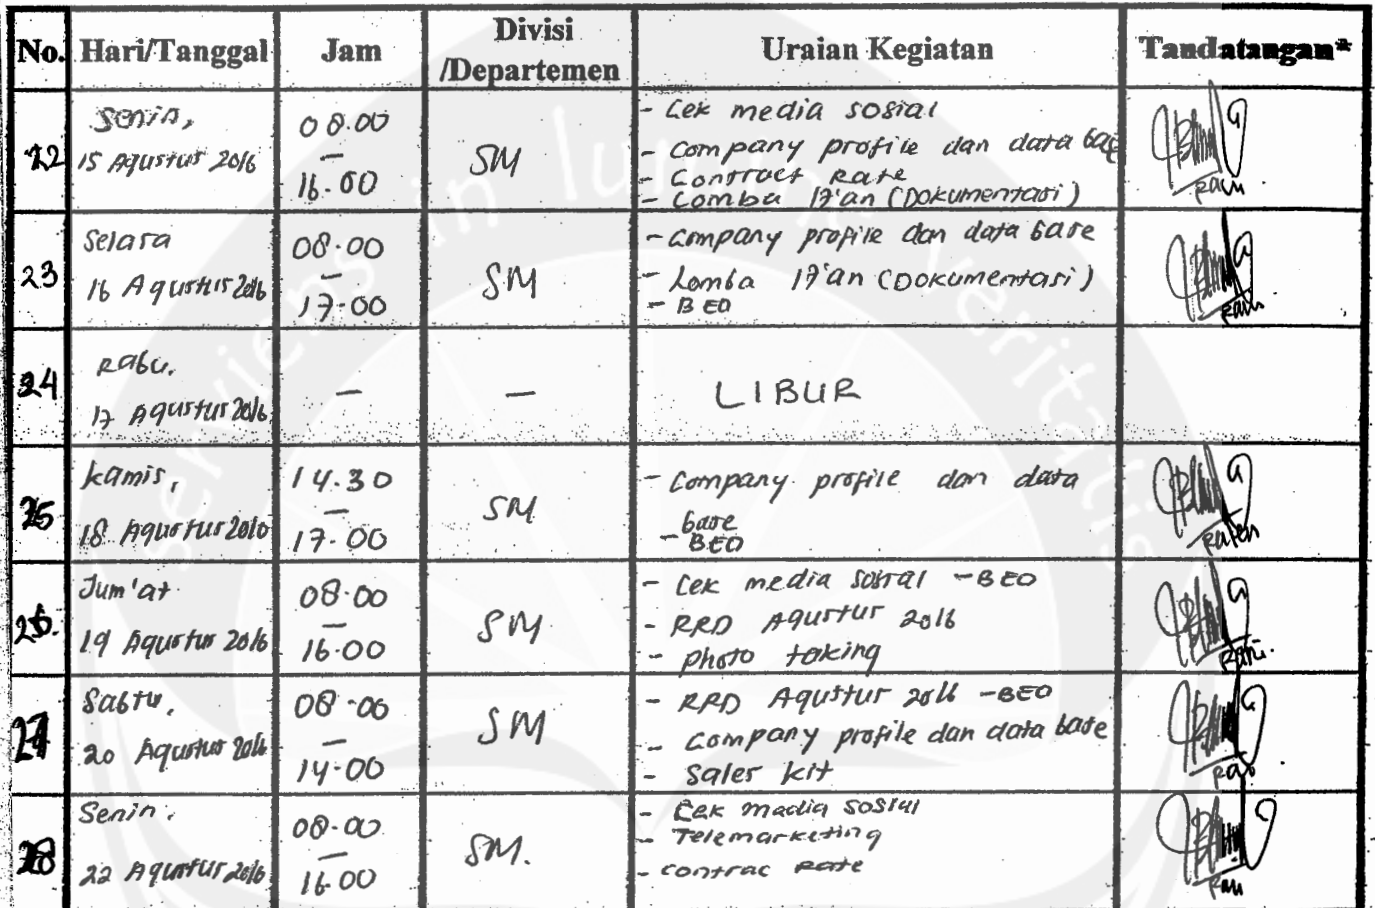 No. Hari/Tanggal Jam Divisi /Departemen Uraian Kegiatan Tandatangan*
22 Senin, 15 Agustus 2016 08.00 – 16.00 SM
- Cek media sosial
- Company profile dan data base
- Contract Rate
- Lomba 17'an (Dokumentasi)
23 Selasa 16 Agustus 2016 08.00 – 17.00 SM
- Company profile dan data base
- Lomba 17'an (Dokumentasi)
- BEO
24 Rabu, 17 Agustus 2016 — — LIBUR
25 Kamis, 18 Agustus 2010 14.30 – 17.00 SM
- Company profile dan data
base
- BEO
26. Jum'at 19 Agustus 2016 08.00 – 16.00 SM
- Cek media sosial - BEO
- RRD Agustus 2016
- photo taking
27 Sabtu, 20 Agustus 2016 08.00 – 14.00 SM
- RRD Agustus 2016 - BEO
- Company profile dan data base
- Sales kit
28 Senin, 22 Agustus 2016 08.00 – 16.00 SM.
- Cek media sosial
- Telemarketing
- contrac Rate
serviens in lumine veritatis